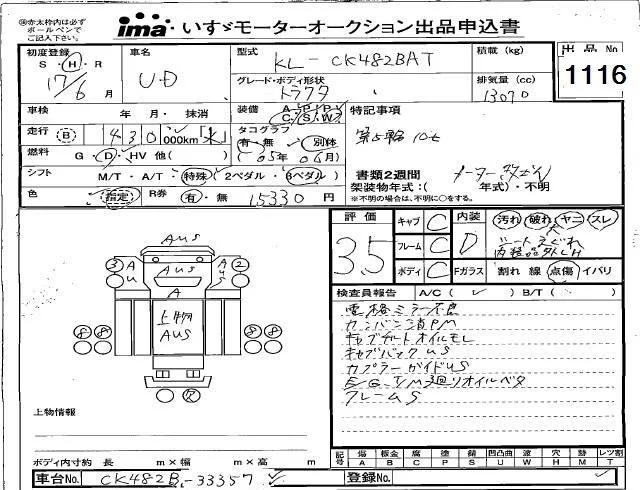 ※赤太枠内は必ずボールペンでご記入下さい。
ima いすゞモーターオークション出品申込書
初度登録 S・H・R 17/6 月
車名 UD
型式 KL-CK482BAT
積載 (kg)
出品No 1116
グレード・ボディ形状 トラクタ
排気量 (cc) 13070
車検 年 月・抹消
装備 A P P C S W
特記事項
走行 B 430 000km
タコグラフ 有・無 別体
第5輪 10t
燃料 G・D・HV 他( )
(05年06月)
書類2週間 メーター改ざん
シフト M/T・A/T・特殊 2ペダル・3ペダル
架装物年式:( 年式)・不明
※不明の場合は、不明に○をする。
色 指定 R券 有・無 15330 円
評価 3.5
キャブ C
内装 D 汚れ 破れ ヤニ スレ
フレーム C
シートえぐれ
ボディ C
Fガラス 割れ 線 点傷 イバリ
検査員報告 A/C ( ✓ ) B/T ( )
電格ミラー不良
カンバン消PM
キャブチルトオイルモレ
キャブバックUS
カプラーガイドUS
E/G、T/M廻りオイルベタ
フレームS
AUS
3 A U
AUS
A U S 2
A
上物 AUS
8 8 8 8
上物情報
記号 傷 A 板金 B 腐 C 塗 P 錆 S 凹凸曲 U 波 W 穴 H 跡 M レツ割 T
ボディ内寸約 長 m×幅 m×高 m
車台No. CK482B-33357
登録No.